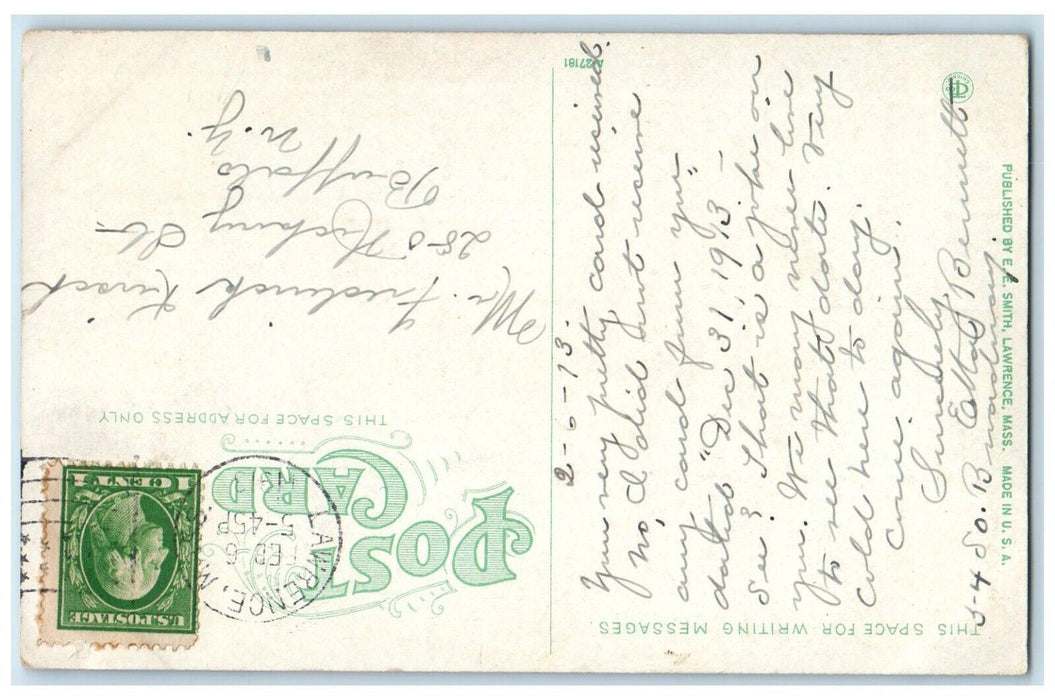 THIS SPACE FOR WRITING MESSAGES.
POST CARD
THIS SPACE FOR ADDRESS ONLY
LAWRENCE, MA
FEB 6
5-45P
U.S. POSTAGE
1 CENT 1
Mr. Fredrick Kirsch
25-0 St.
Buffalo
N.Y.
2-6-13.
Your very pretty card received.
No, I did not receive
any card from you
dated "Dec 31, 1913-
See? That is a joke on
you. We may never live
to see that date. Very
Cold here to day.
Come again.
Sincerely
Etta J Bennett
544 So. Broadway
A-27181
PUBLISHED BY E. E. SMITH, LAWRENCE, MASS. MADE IN U. S. A.